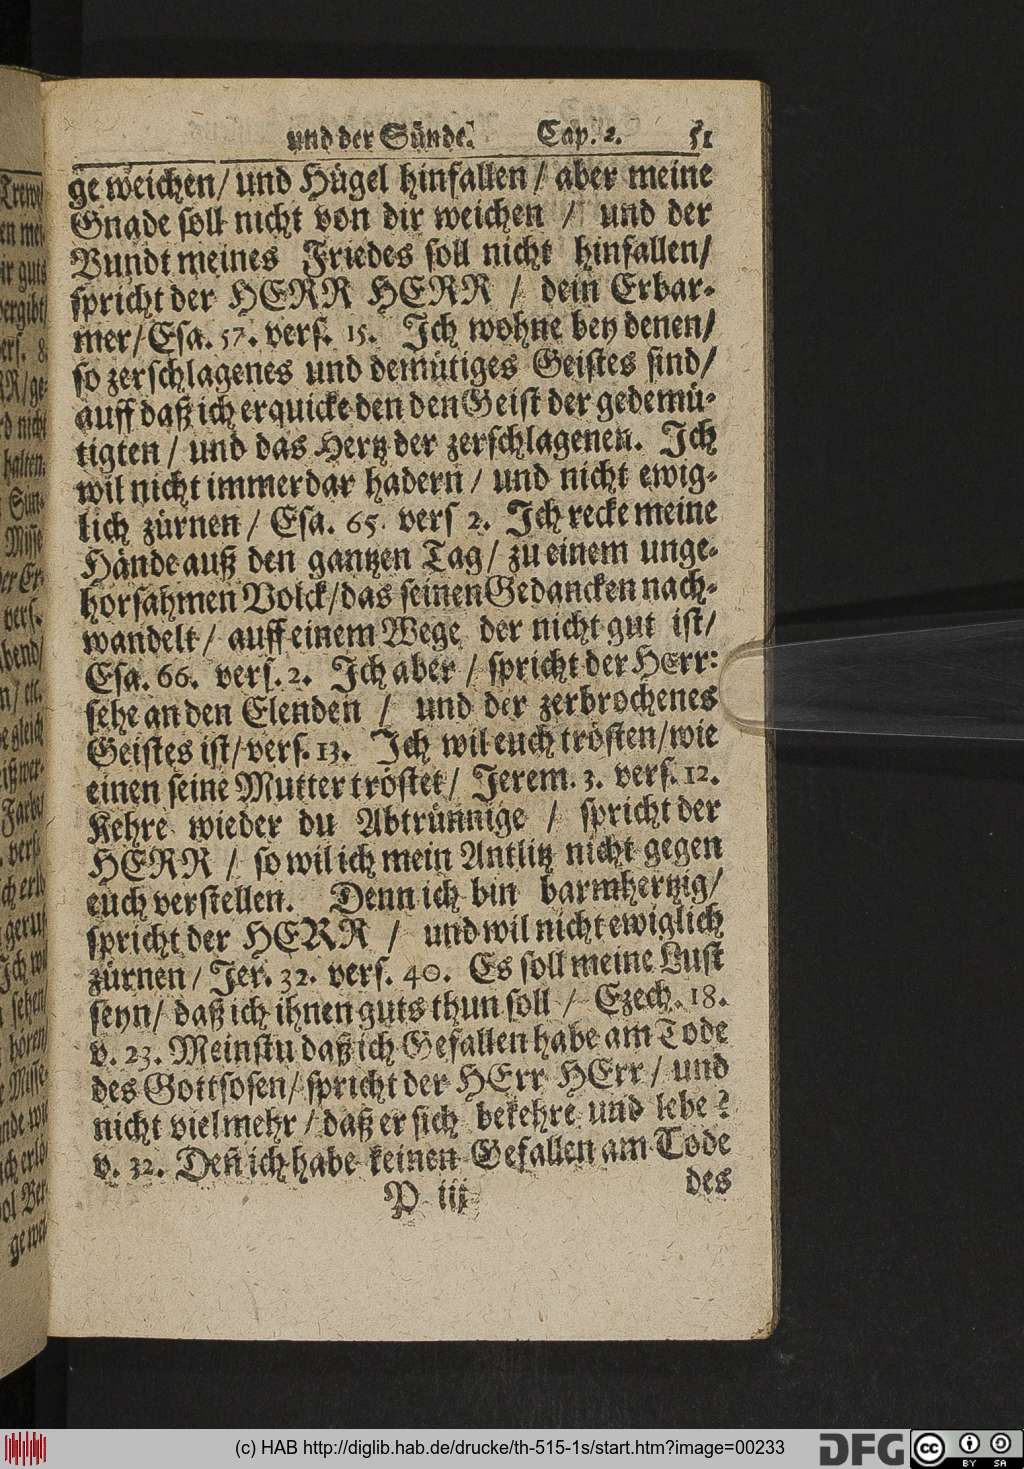 und der Sünde. Cap. 2. 51
ge weichen/ und Hügel hinfallen/ aber meine
Gnade soll nicht von dir weichen / und der
Bundt meines Friedes soll nicht hinfallen/
spricht der HERR HERR / dein Erbar-
mer/ Esa. 57. vers. 15. Ich wohne bey denen/
so zerschlagenes und demütiges Geistes sind/
auff daß ich erquicke den den Geist der gedemü-
tigten / und das Hertz der zerschlagenen. Ich
wil nicht immerdar hadern / und nicht ewig-
lich zürnen / Esa. 65. vers 2. Ich recke meine
Hände auß den gantzen Tag/ zu einem unge-
horsahmen Volck/ das seinen Gedancken nach-
wandelt/ auff einem Wege der nicht gut ist/
Esa. 66. vers. 2. Ich aber / spricht der HErr:
sehe an den Elenden / und der zerbrochenes
Geistes ist/ vers. 13. Ich wil euch trösten/ wie
einen seine Mutter tröstet/ Jerem. 3. vers. 12.
Kehre wieder du Abtrünnige / spricht der
HERR / so wil ich mein Antlitz nicht gegen
euch verstellen. Denn ich bin barmhertzig/
spricht der HERR / und wil nicht ewiglich
zürnen/ Jer. 32. vers. 40. Es soll meine Lust
seyn/ daß ich ihnen guts thun soll / Ezech. 18.
v. 23. Meinstu daß ich Gefallen habe am Tode
des Gottsosen/ spricht der HErr HErr/ und
nicht vielmehr / daß er sich bekehre und lebe?
v. 32. Deñ ich habe keinen Gefallen am Tode
P iij des
(c) HAB http://diglib.hab.de/drucke/th-515-1s/start.htm?image=00233
DFG
cc BY SA